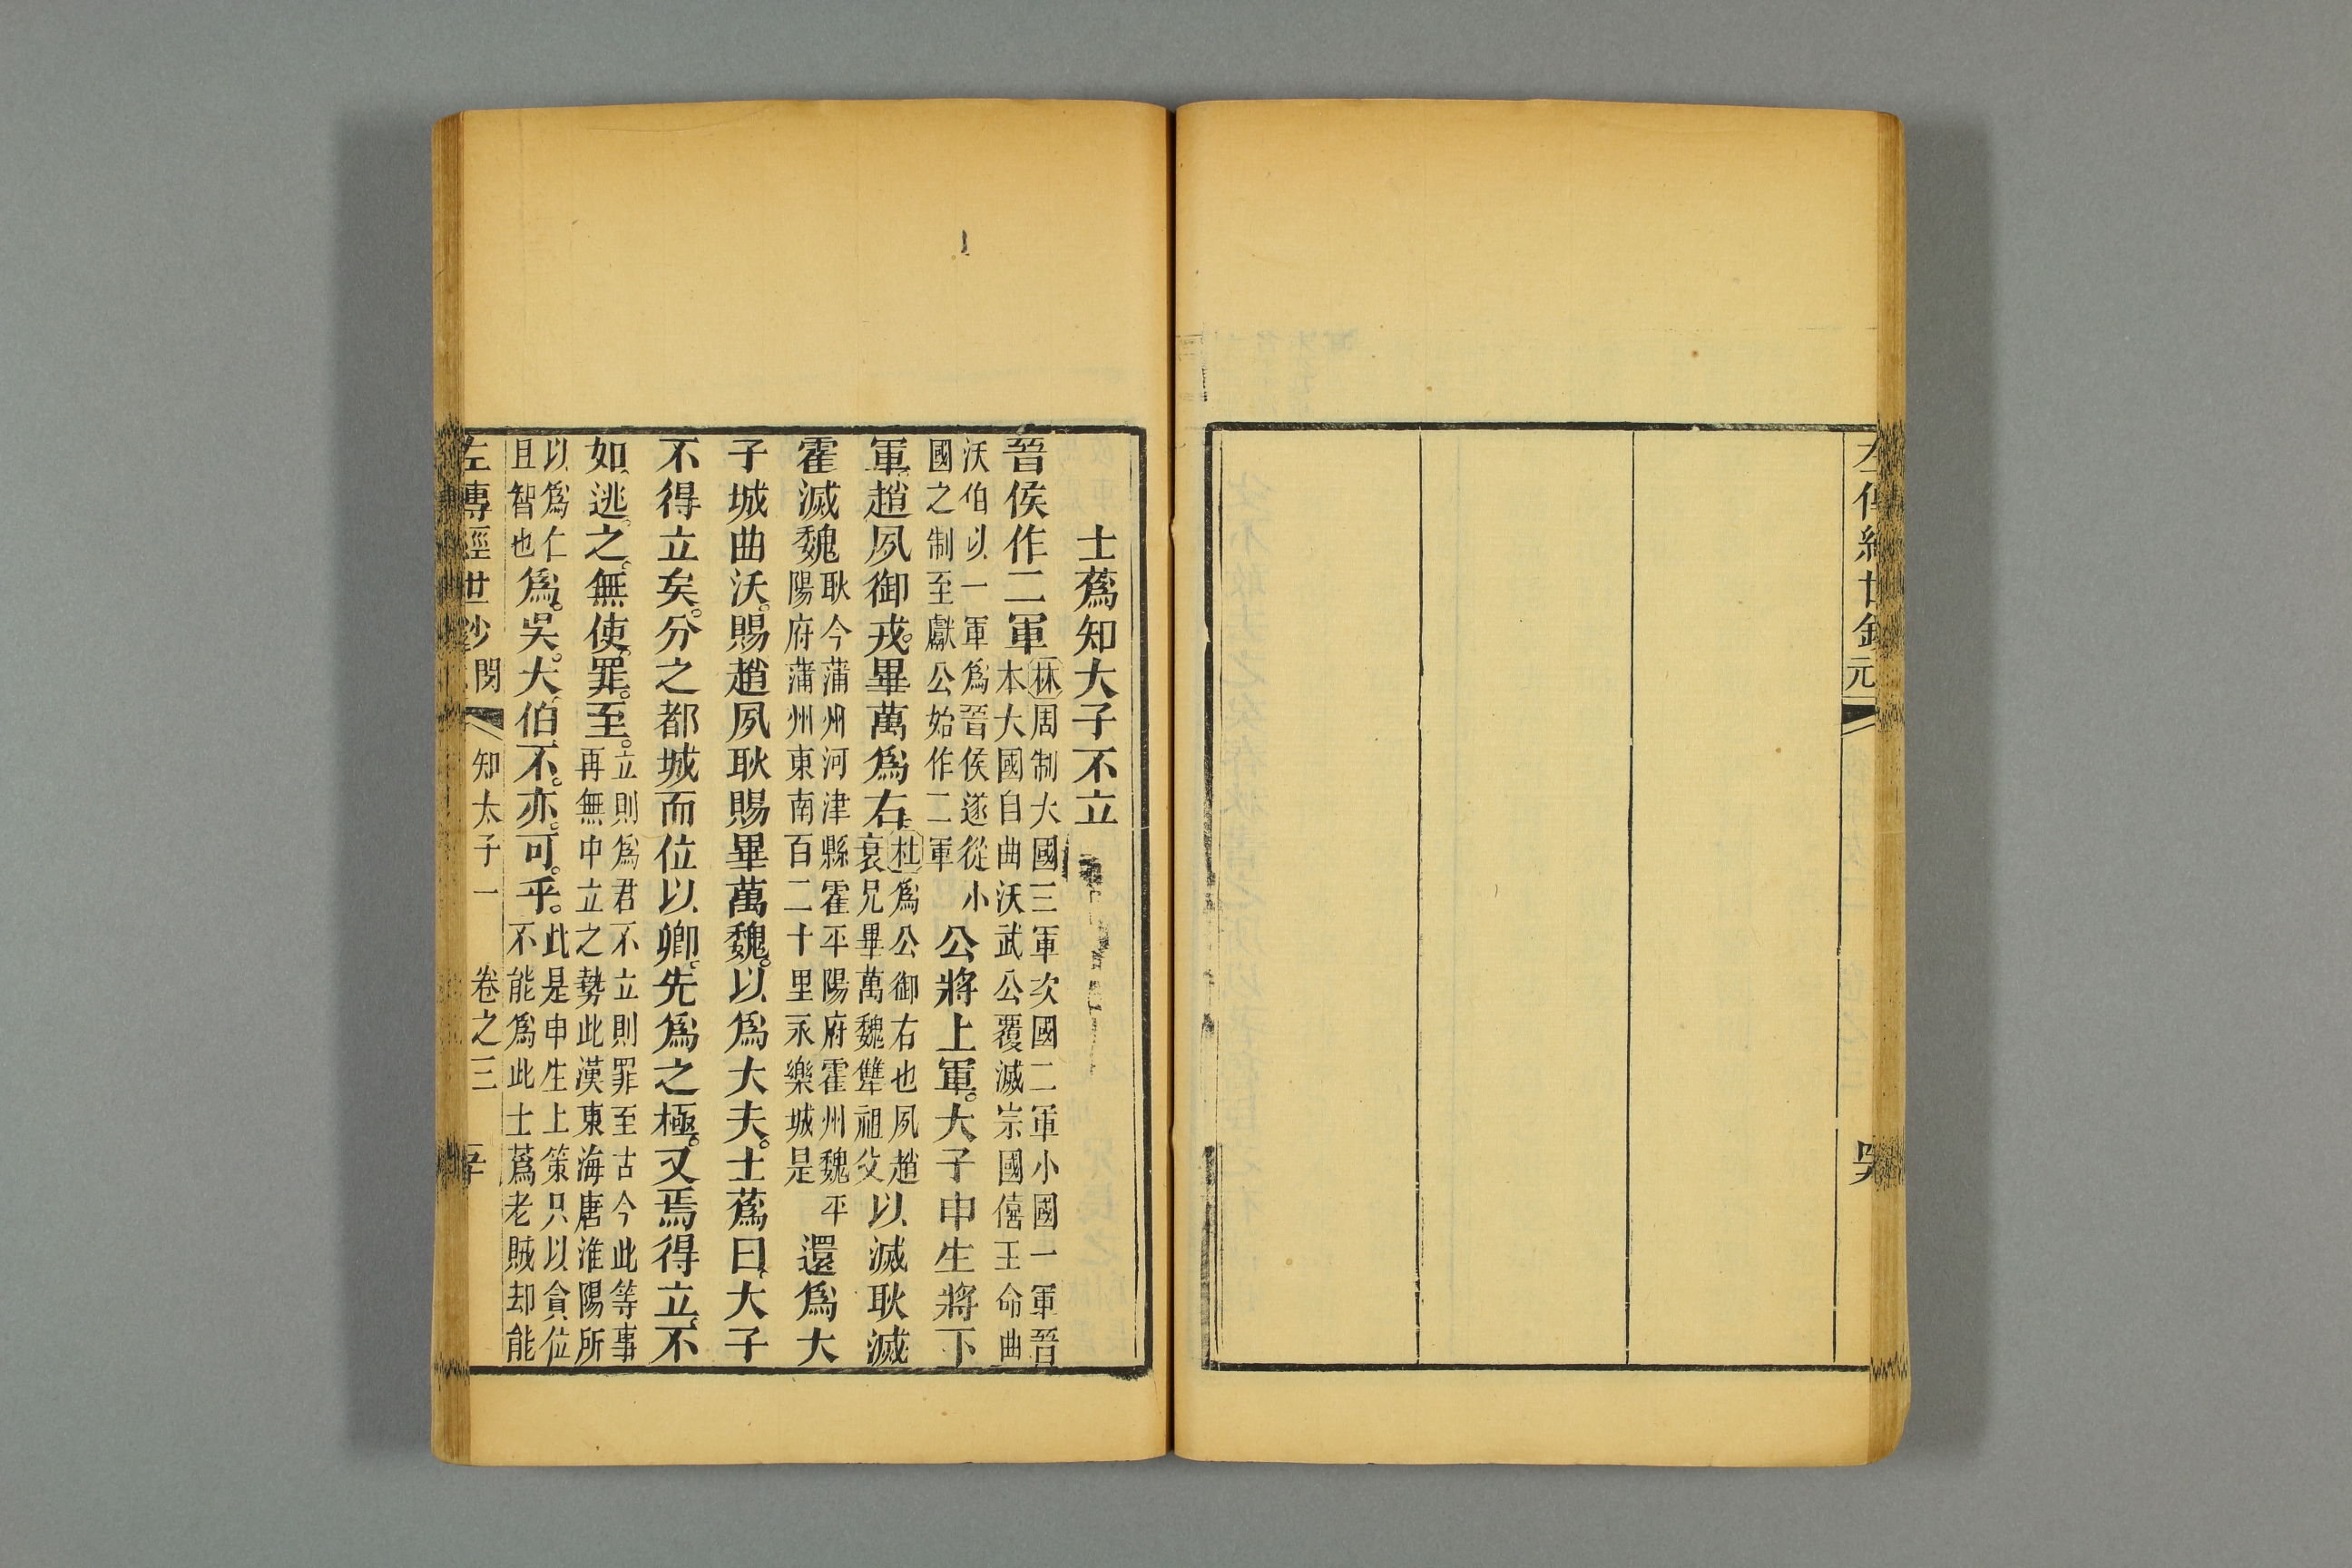 士蔿知大子不立
晉侯作二軍林周制大國三軍次國二軍小國一軍晉本大國自曲沃武公覆滅宗國僖王命曲
沃伯以一軍爲晉侯遂從小國之制至獻公始作二軍公將上軍。大子申生將下
軍。趙夙御戎。畢萬爲右。杜爲公御右也夙趙衰兄畢萬魏犨祖父以滅耿滅
霍滅魏耿今蒲州河津縣霍平陽府霍州魏平陽府蒲州東南百二十里永樂城是還爲大
子城曲沃。賜趙夙耿賜畢萬魏。以爲大夫。士蔿曰、大子
不得立矣。分之都城而位以卿。先爲之極。又焉得立。不
如。逃。之。無。使。罪。至。立則爲君不立則罪至古今此等事再無中立之勢此漢東海唐淮陽所
以爲仁且智也爲。吳。大伯不。亦。可。乎。此是申生上策只以貪位不能爲此士蔿老賊却能
左傳經世鈔 閔 知太子一 卷之三
左傳經世鈔 元